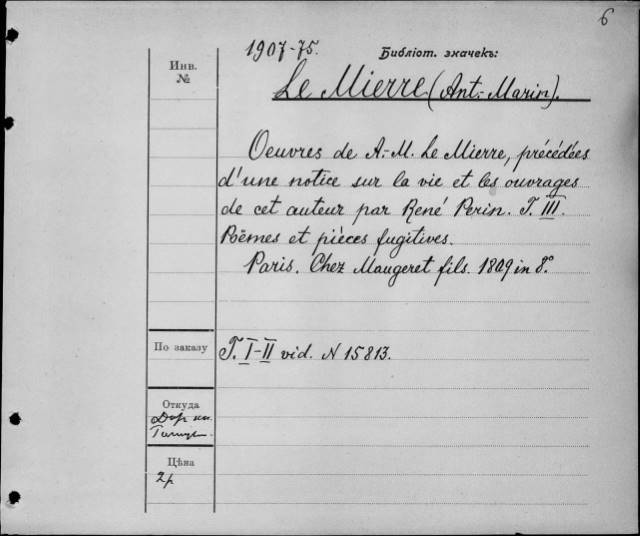 6
1907-75.
Библіот. значекъ:
Инв.
№
Le Mierre (Ant.-Marin).
Oeuvres de A.-M. Le Mierre, précédées
d'une notice sur la vie et les ouvrages
de cet auteur par René Perin. T. III.
Poëmes et pièces fugitives.
Paris. Chez Maugeret fils. 1809 in 8°.
По заказу
T. I-II vid. N 15813.
Откуда
Дар кн.
Цѣна
2р